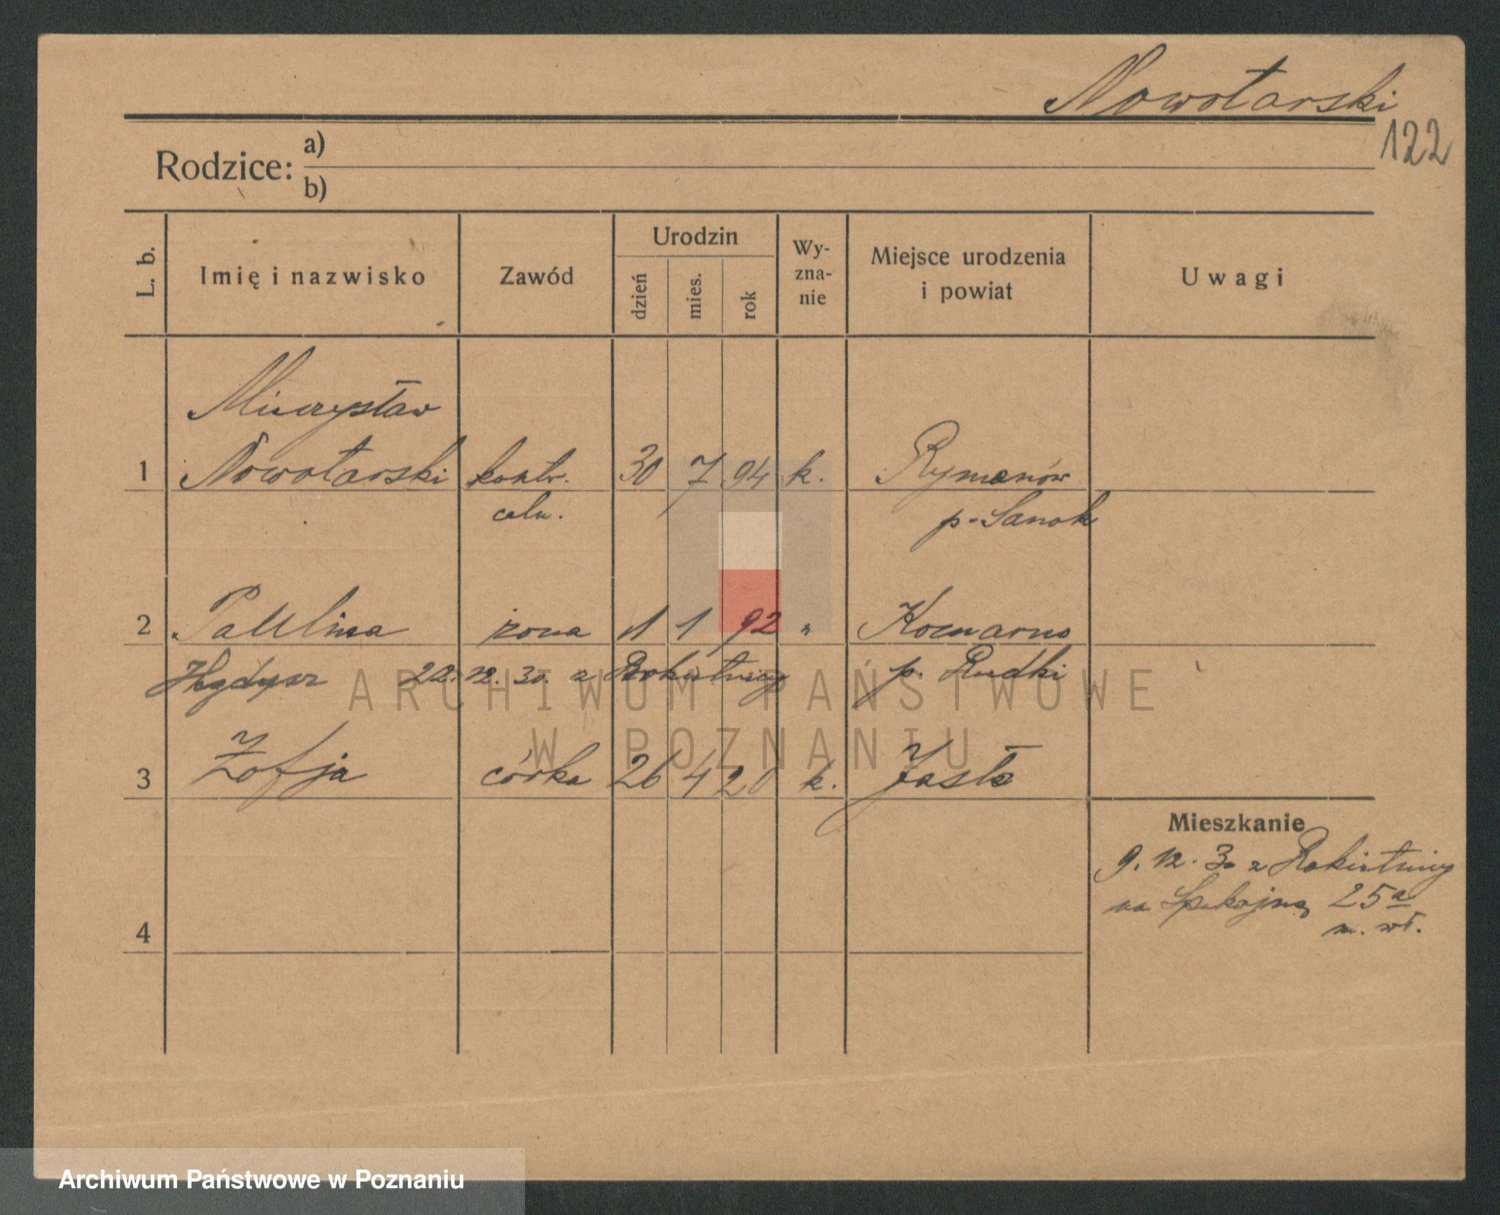 Nowotarski
122
Rodzice: a)
b)
L. b.
Imię i nazwisko
Zawód
Urodzin
dzień
mies.
rok
Wy-
zna-
nie
Miejsce urodzenia
i powiat
Uwagi
Mieczysław
1 Nowotarski kontr. 30 7 94 k. Rymanów
celn. p. Sanok
2 Paulina żona 1 1 92 " Komarno
22. 12. 30. z Rokietnicy p. Rudki
3 Zofja córka 26 4 20 k. Jasło
Mieszkanie
9. 12. 30 z Rokietnicy
na Spokojną 25a
4
ARCHIWUM PAŃSTWOWE
W POZNANIU
Archiwum Państwowe w Poznaniu